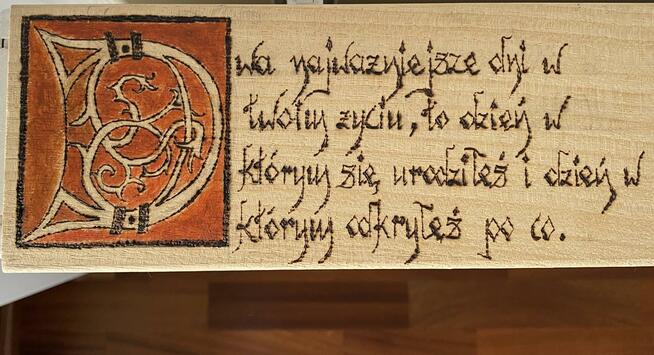 Dwa najważniejsze dni w
twoim życiu, to dzień w
którym się urodziłeś i dzień w
którym odkryłeś po co.